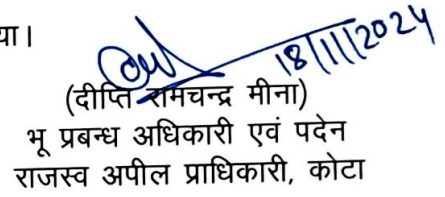 या।
18/11/2024
(दीप्ति रामचन्द्र मीना)
भू प्रबन्ध अधिकारी एवं पदेन
राजस्व अपील प्राधिकारी, कोटा